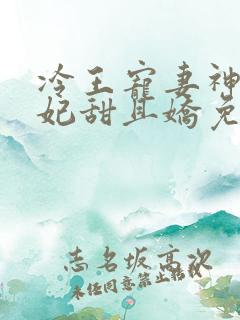 冷王寵妻神
妃甜且嬌免
志名坂高次
未任同意禁止轉載